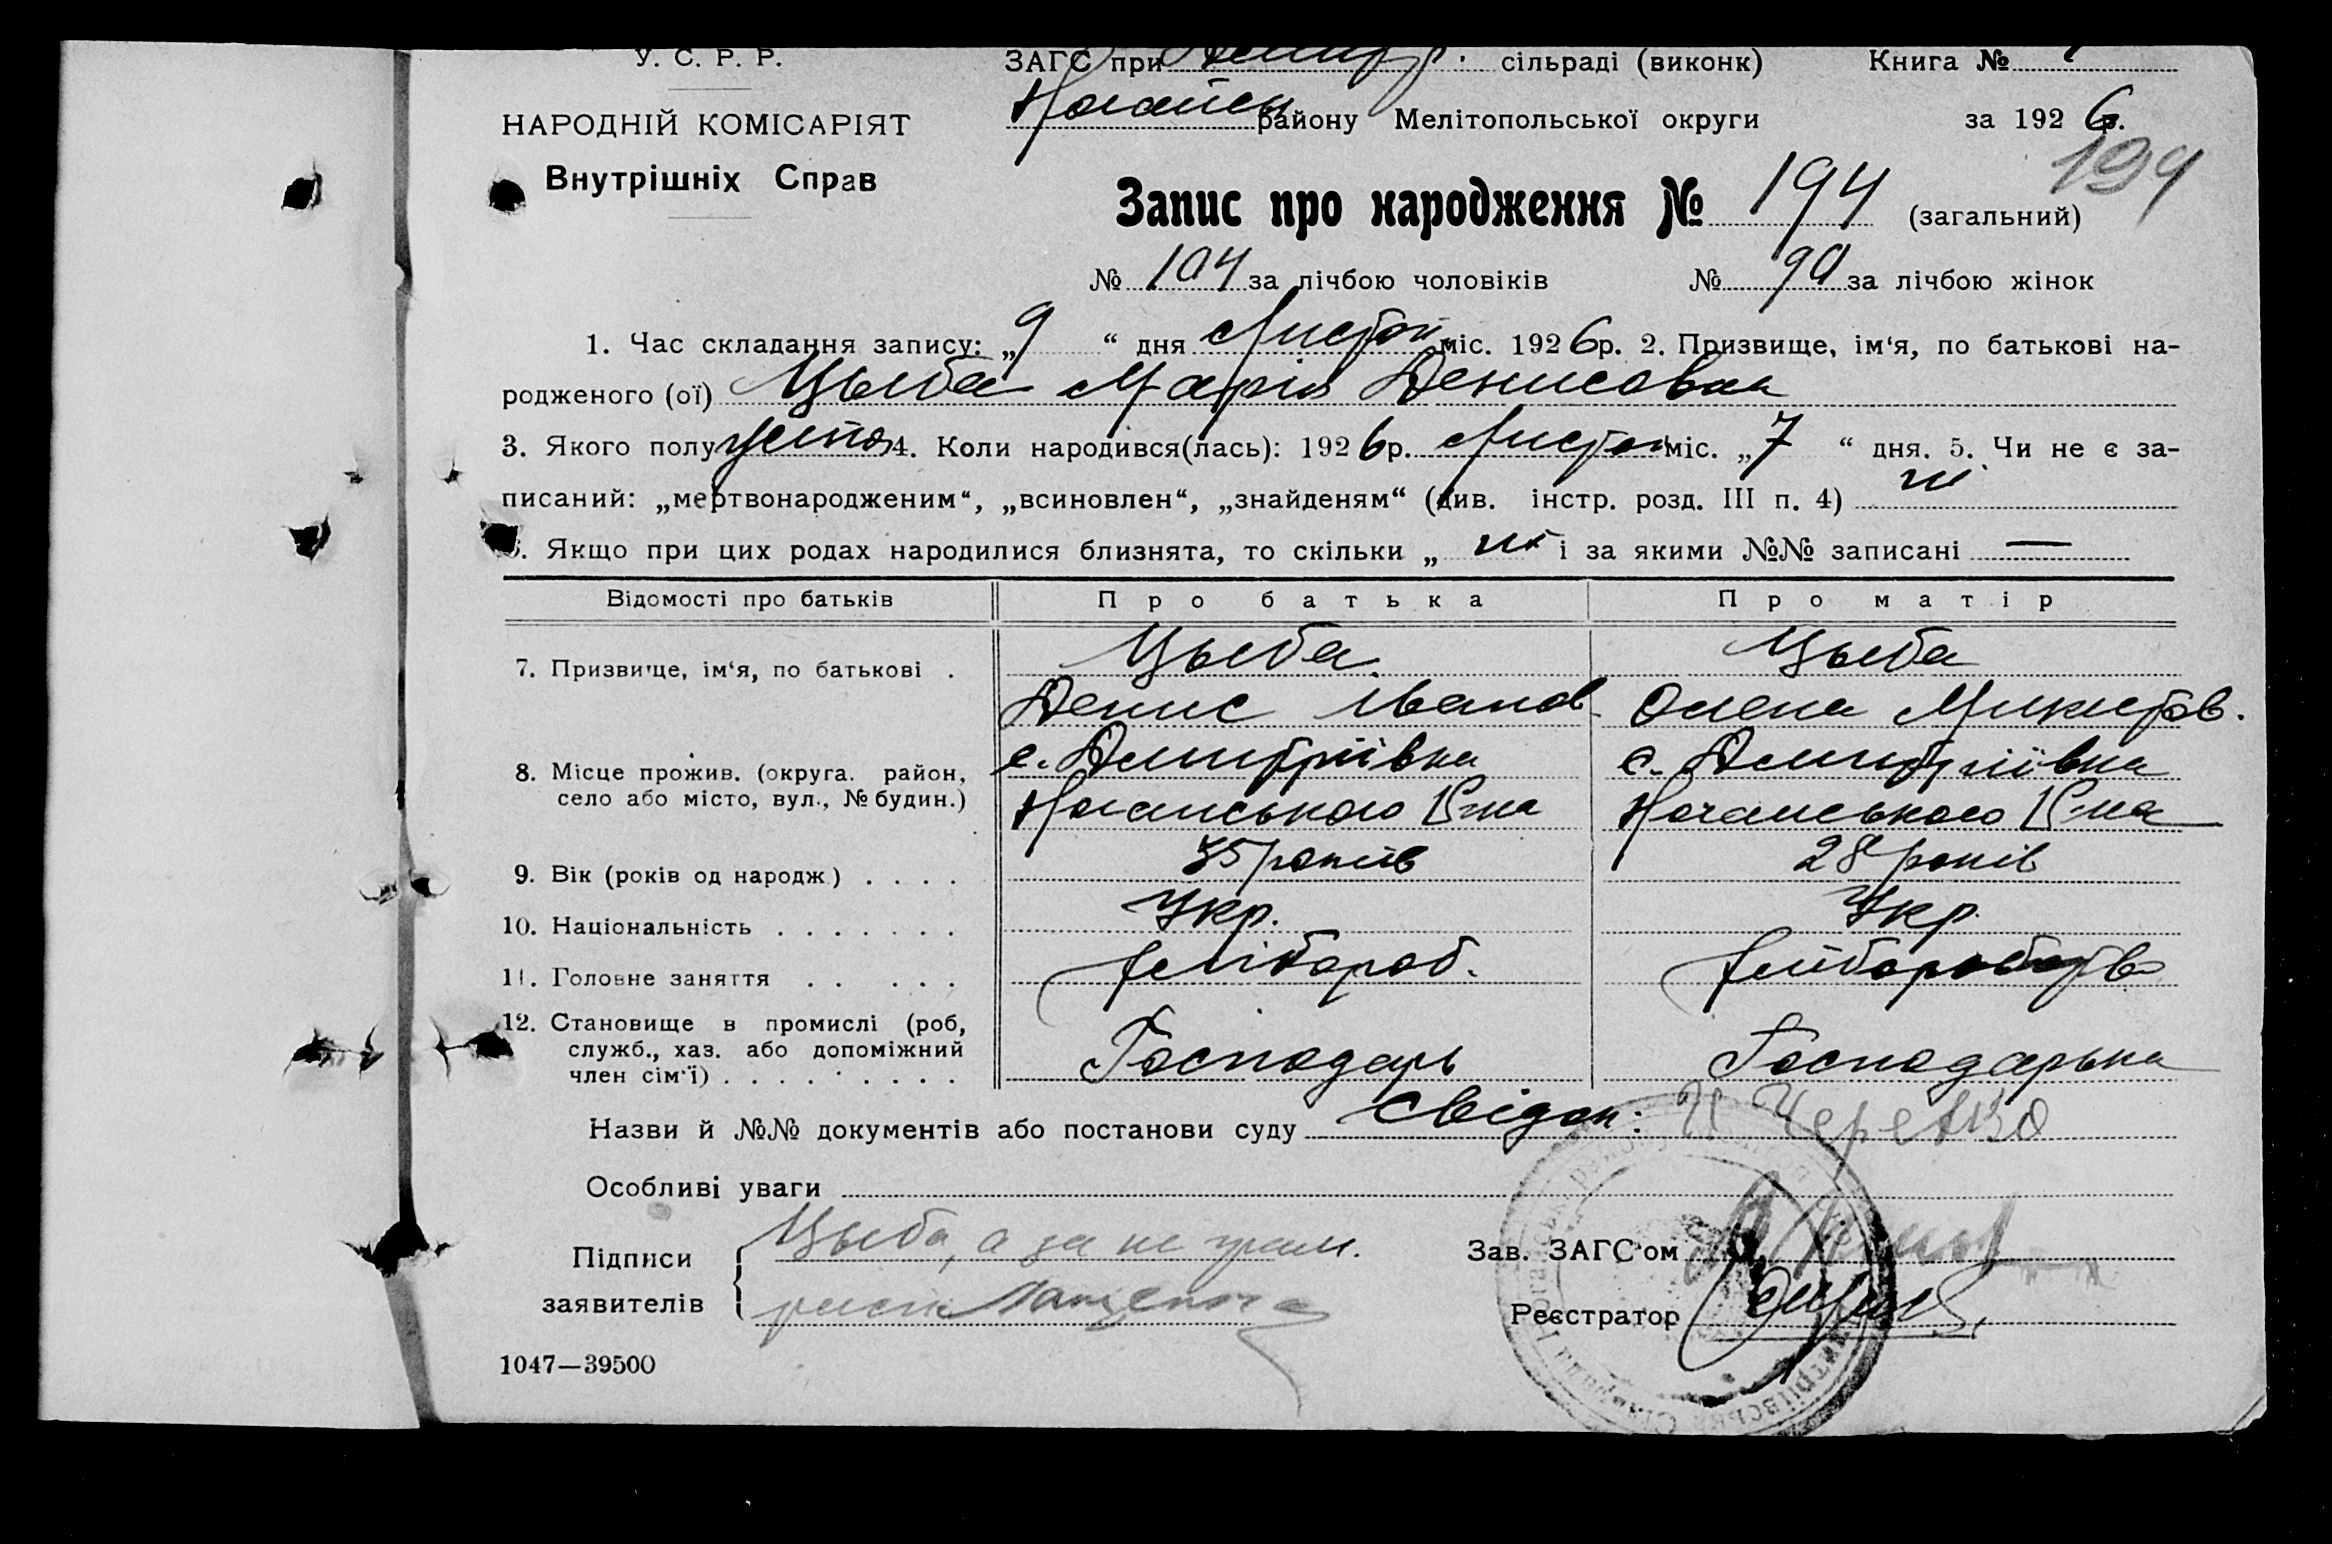 У. С. Р. Р.
ЗАГС при Дмитр. сільраді (виконк) Книга №
НАРОДНІЙ КОМІСАРІЯТ
Внутрішніх Справ
Ногайськ району Мелітопольської округи за 1926р.
194
Запис про народження № 194 (загальний)
№ 104 за лічбою чоловіків № 90 за лічбою жінок
1. Час складання запису: „9“ дня Листоп міс. 1926р. 2. Призвище, ім‘я, по батькові на-
родженого (ої) Цыба Марія Денисовна
3. Якого полу 4. Коли народився(лась): 1926р. Листоп міс. „7“ дня. 5. Чи не є за-
писаний: „мертвонародженим“, „всиновлен“, „знайденям“ (див. інстр. розд. III п. 4) ні
6. Якщо при цих родах народилися близнята, то скільки „ ні і за якими №№ записані —
Відомості про батьків Про батька Про матір
7. Призвище, ім‘я, по батькові . Цыба Цыба
Денис Іванов Олена Микитов.
8. Місце прожив. (округа. район, с. Дмитріївка с. Дмитріївка
село або місто, вул., № будин.) Ногайського Р-на Ногайського Р-на
9. Вік (років од народж.) . . . . 35 років 28 років
10. Національність . . . . . . . Укр. Укр
11. Головне заняття . . . . . Хлібороб. Хлібороботв
12. Становище в промислі (роб, служб., хаз. або допоміжний член сім‘ї) . . . . . . . . . Господарь Господарька
Назви й №№ документів або постанови суду Свідок: И Черевко
Особливі уваги
Підписи заявителів Цыба, а за не грам.
Зав. ЗАГС‘ом
распи
Реєстратор
1047—39500